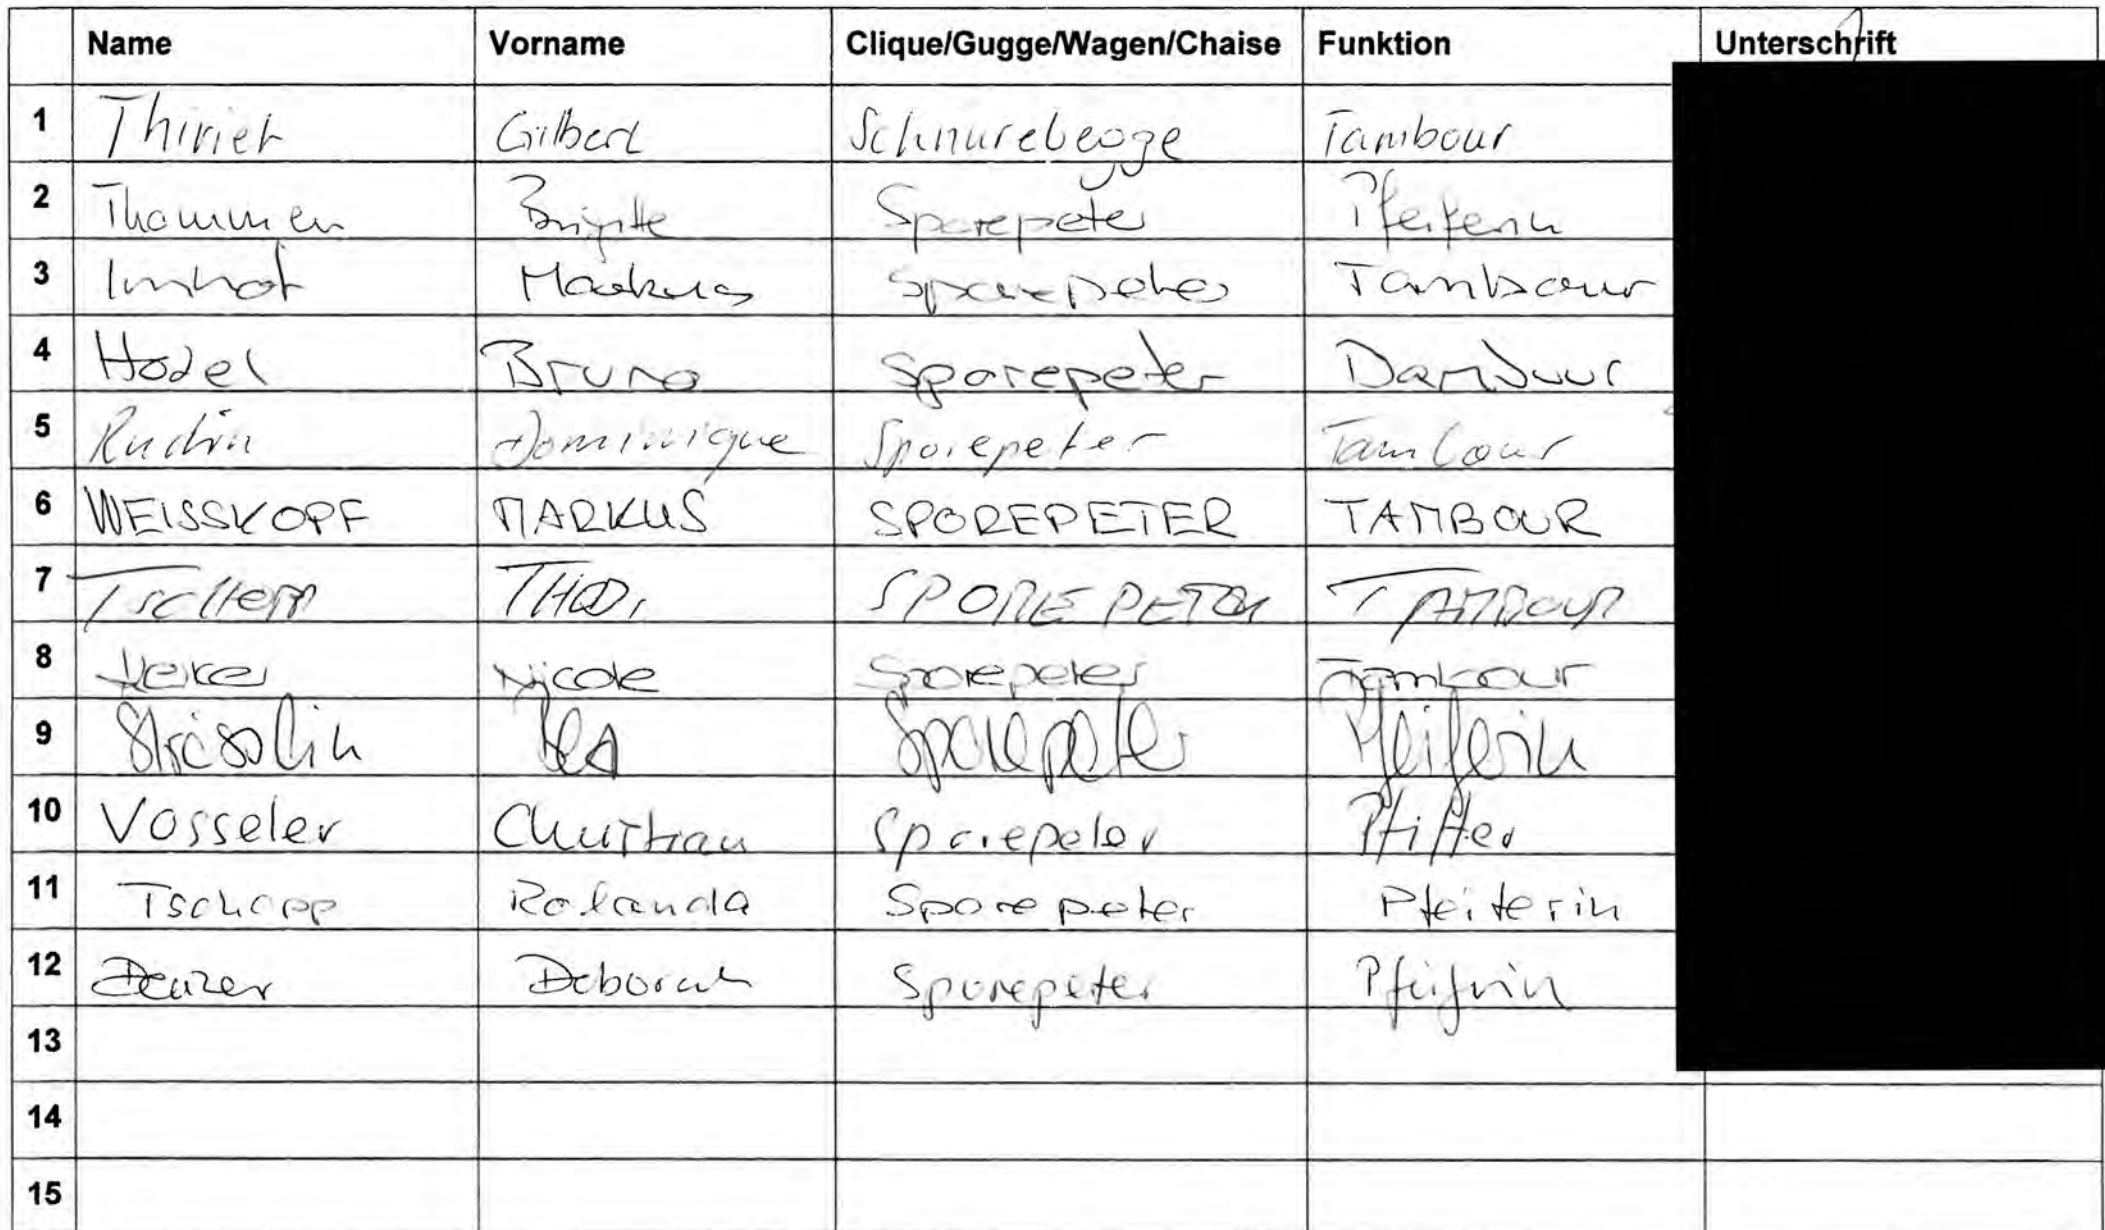 Name Vorname Clique/Gugge/Wagen/Chaise Funktion Unterschrift
1 Thiriet Gilbert Schnurebegge Tambour
2 Thommen Brigitte Sporepeter Pfeiferin
3 Imhof Markus Sporepeter Tambour
4 Hodel Bruno Sporepeter Dambuur
5 Rudin Dominique Sporepeter Tambour
6 WEISSKOPF MARKUS SPOREPETER TAMBOUR
7 SPOREPETER TAMBOUR
8 Nicole Sporepeter Tambour
9 Sporepeter Pfeiferin
10 Vosseler Christian Sporepeter Pfiffer
11 Tschopp Rolanda Sporepeter Pfeiferin
12 Denzer Deborah Sporepeter Pfeiferin
13
14
15